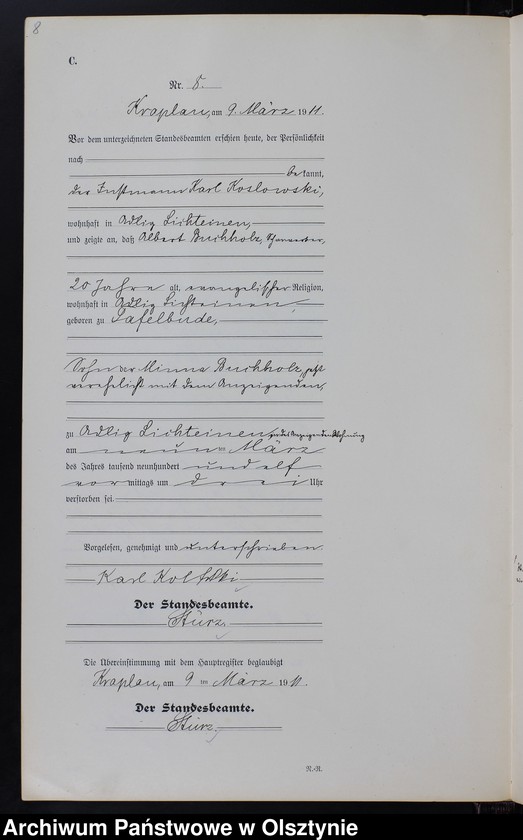 8
C.
Nr. 8.
Kraplau, am 9. März 1911.
Vor dem unterzeichneten Standesbeamten erschien heute, der Persönlichkeit
nach
bekannt,
der Instmann Karl Koslowski,
wohnhaft in Adlig Lichteinen,
und zeigte an, daß Albert Buchholz, Scharwerker,
20 Jahre alt, evangelischer Religion,
wohnhaft in Adlig Lichteinen,
geboren zu Tafelbude,
Sohn der Minna Buchholz, jetzt
verehelicht mit dem Anzeigenden,
zu Adlig Lichteinen, in des Anzeigenden Wohnung
am neunten März
des Jahres tausend neunhundert und elf
vormittags um drei Uhr
verstorben sei.
Vorgelesen, genehmigt und unterschrieben.
Karl
Der Standesbeamte.
Stürz.
Die Übereinstimmung mit dem Hauptregister beglaubigt
Kraplau, am 9 ten März 1911.
Der Standesbeamte.
Stürz.
N.-R.
Archiwum Państwowe w Olsztynie